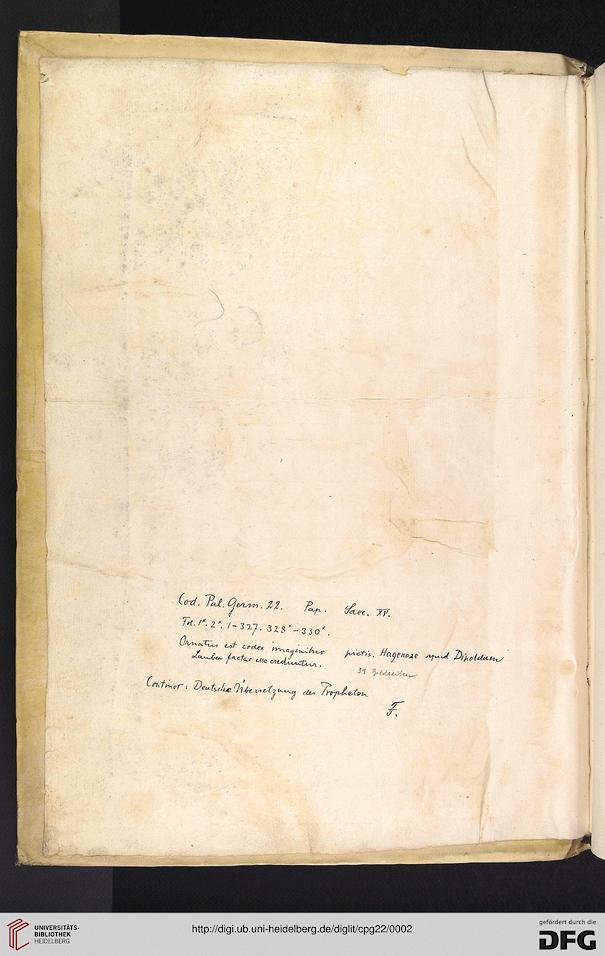 Cod. Pal. Germ. 22. Pap. Saec. XV.
Fol. 1*. 2*. 1-327. 328*-330*.
Ornatus est codex imaginibus pictis. Hagenoae apud Diboldum
Lauber factae esse creduntur.
31 Bildseiten
Continet: Deutsche Übersetzung der Propheten
F.
UNIVERSITÄTS-
BIBLIOTHEK
HEIDELBERG
http://digi.ub.uni-heidelberg.de/diglit/cpg22/0002
gefördert durch die
DFG